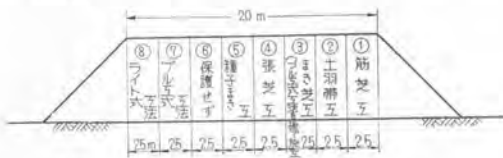 20 m
⑧ ライト式工法
⑦ プル式工法
⑥ 保護せず
⑤ 種子まき工
④ 張芝工
③ まき芝工
② 土羽帯工
① 筋芝工
2.5m 2.5 2.5 2.5 2.5 2.5 2.5 2.5